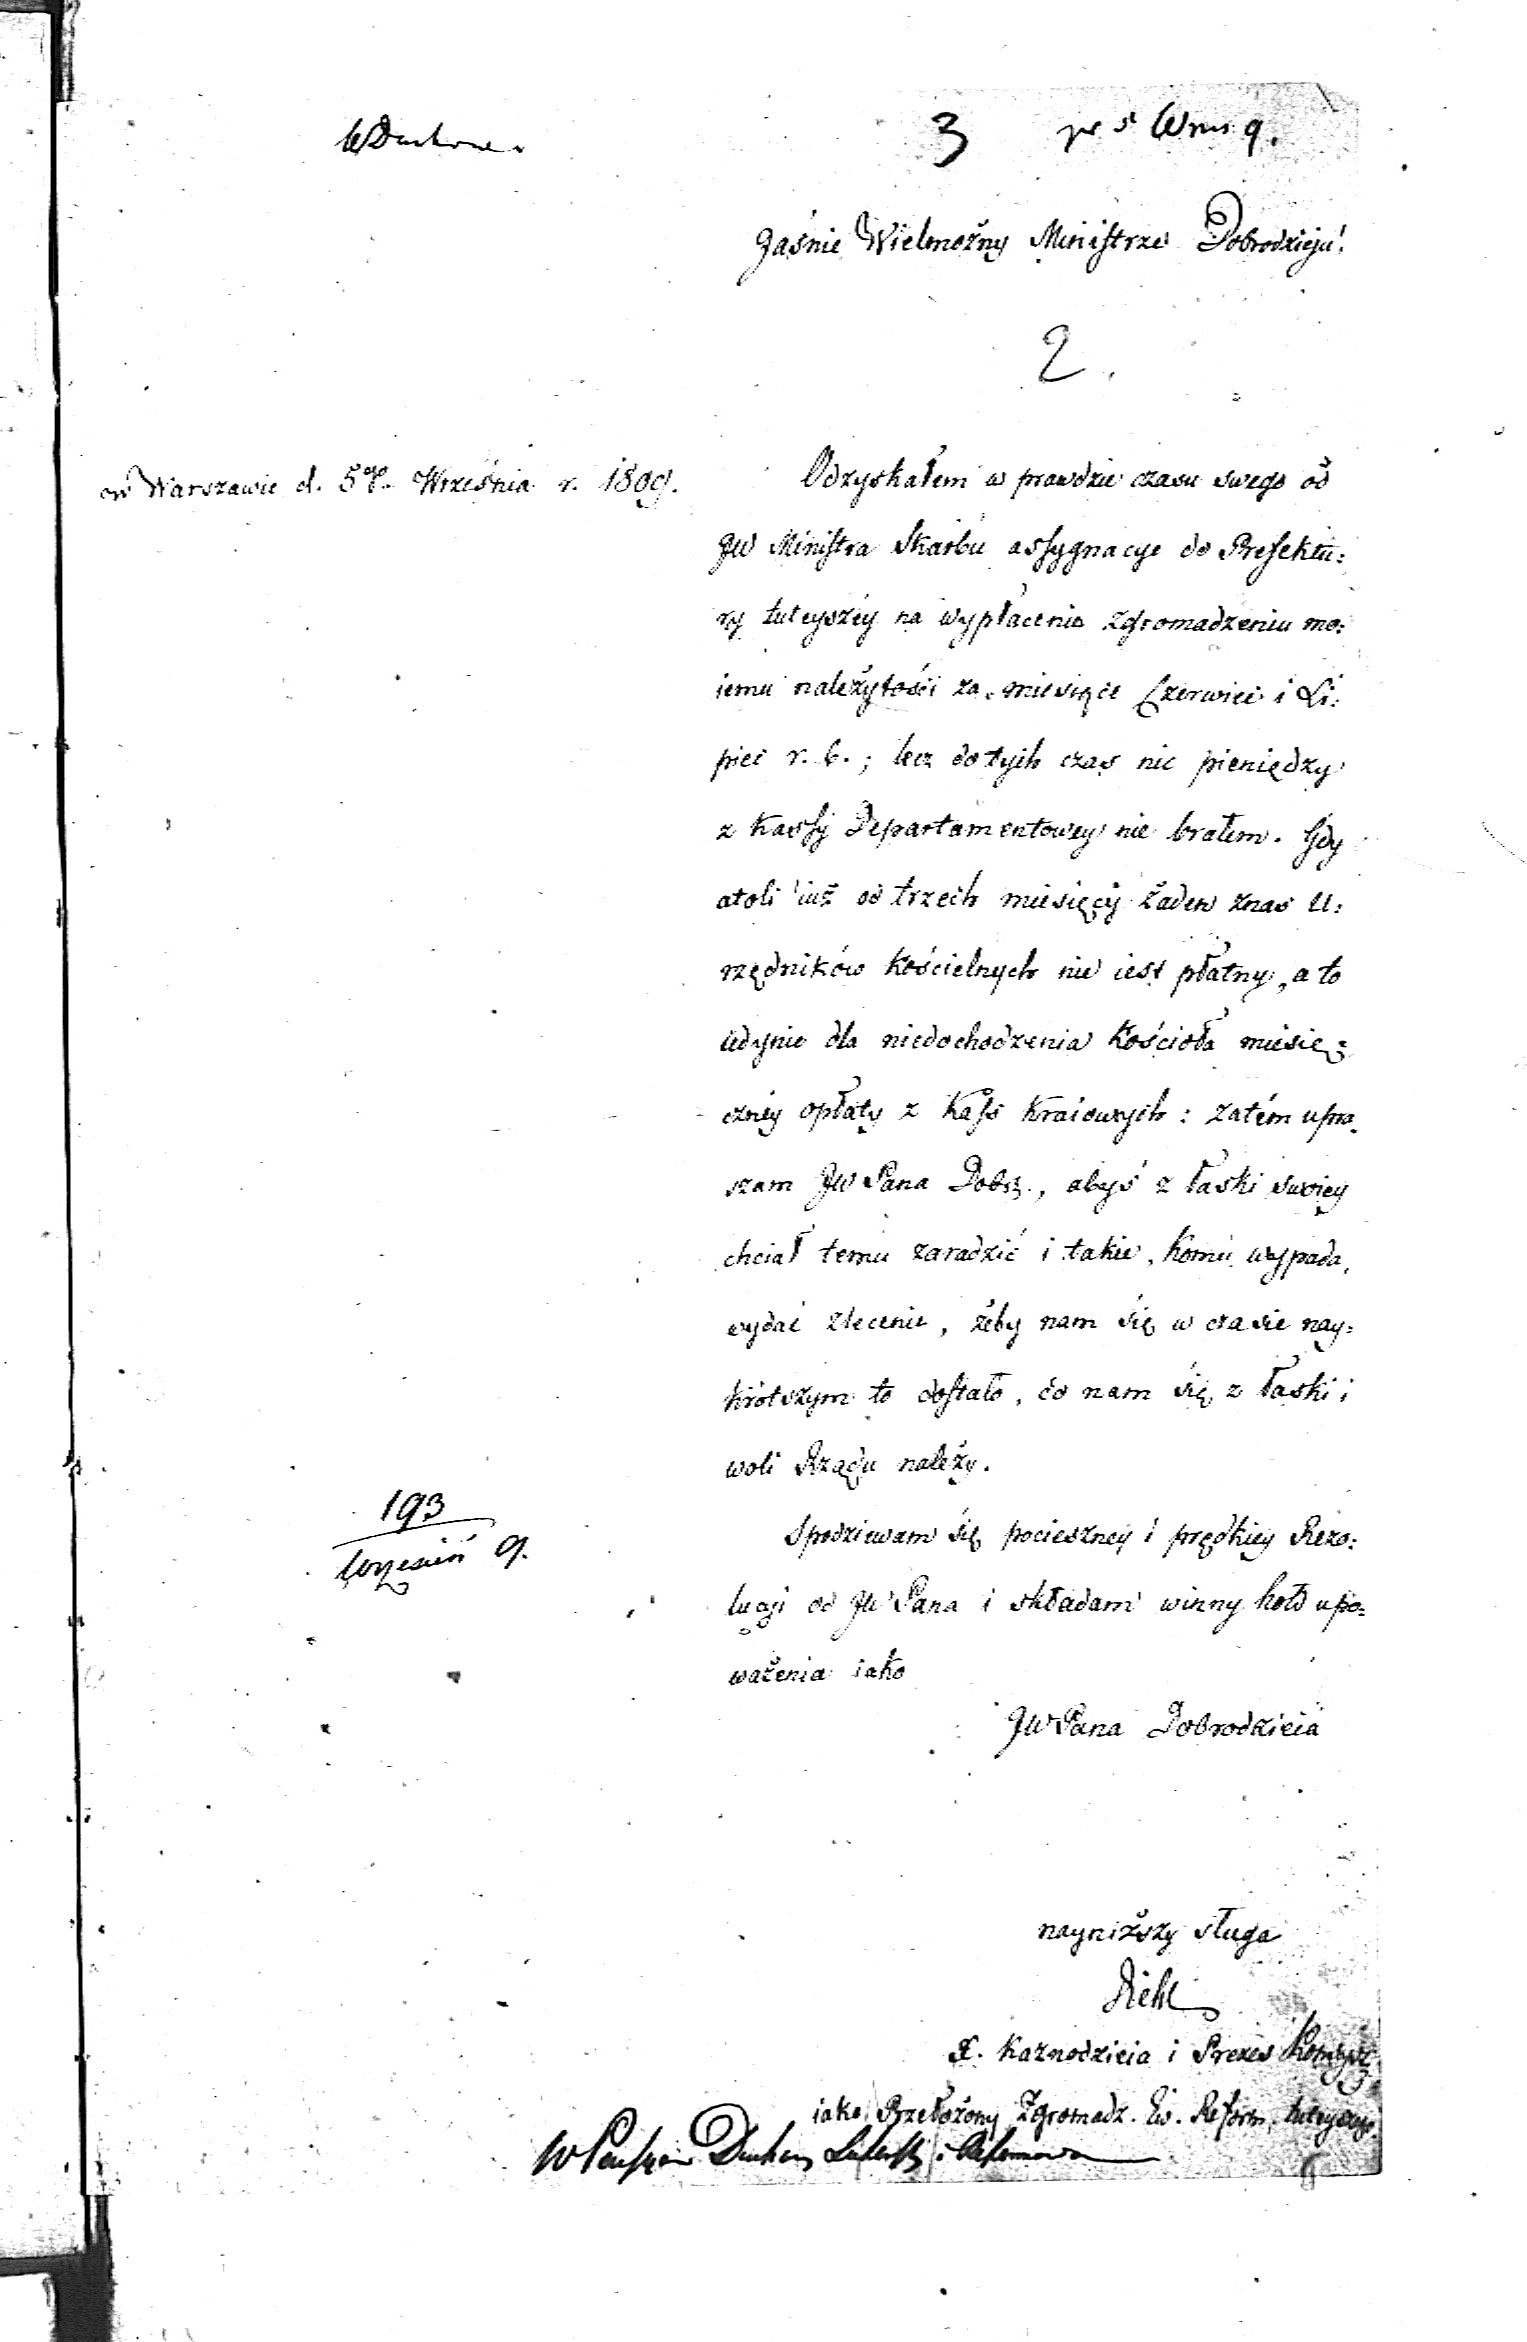 W Duchowne
3
Wrns 9.
Jaśnie Wielmożny Ministrze Dobrodzieju!
2.
w Warszawie d. 5go Września r. 1809.
Odzyskałem w prawdzie czasu swego od
JW Ministra Skarbu assygnacye do Prefektu:
ry tuteyszéy na wypłacenie zgromadzeniu mo:
iemu należytości za miesiące Czerwiec i Li:
piec r. b.; lecz dotych czas nic pieniędzy
z Kassy Departamentowey nie brałem. Gdy
atoli iuż od trzech miesięcy żaden znas U:
rzędników Kościelnych nie iest płatny, a to
iedynie dla niedochodzenia Kościoła miesię:
czney opłaty z Kass Kraiowych: zatém upra:
szam JW Pana Dobr., abyś z łaski swoiey
chciał temu zaradzić i takie, komu wypada,
wydać zlecenie, żeby nam się w czasie nay:
krótszym to dostało, co nam się z łaski i
woli Rządu należy.
Spodziewam się pocieszney i prędkiey Rezo:
lucyi od JW Pana i składam winny hołd upo:
ważenia iako
JW Pana Dobrodzieia
193
Wrzesień 9.
nayniższy sługa
Diehl
X. Kaznodzieia i Prezes Konsyst.
iako Przełożony Zgromadz. Ew. Reform. tuteyszego.
W Duchow Luters i Reformowa